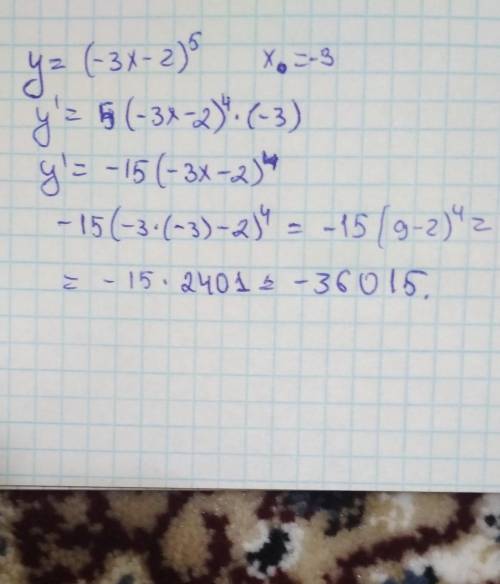 y = (-3x-2)⁵ x₀ = -3
y' = 5(-3x-2)⁴·(-3)
y' = -15(-3x-2)⁴
-15(-3·(-3)-2)⁴ = -15(9-2)⁴ =
= -15·2401 = -36015.